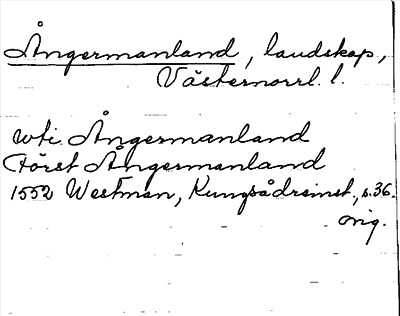 Ångermanland, landskap,
Västernorrl. l.
uti Ångermanland
Först Ångermanland
1552 Westman, Kungsådreinst., s. 36.
orig.